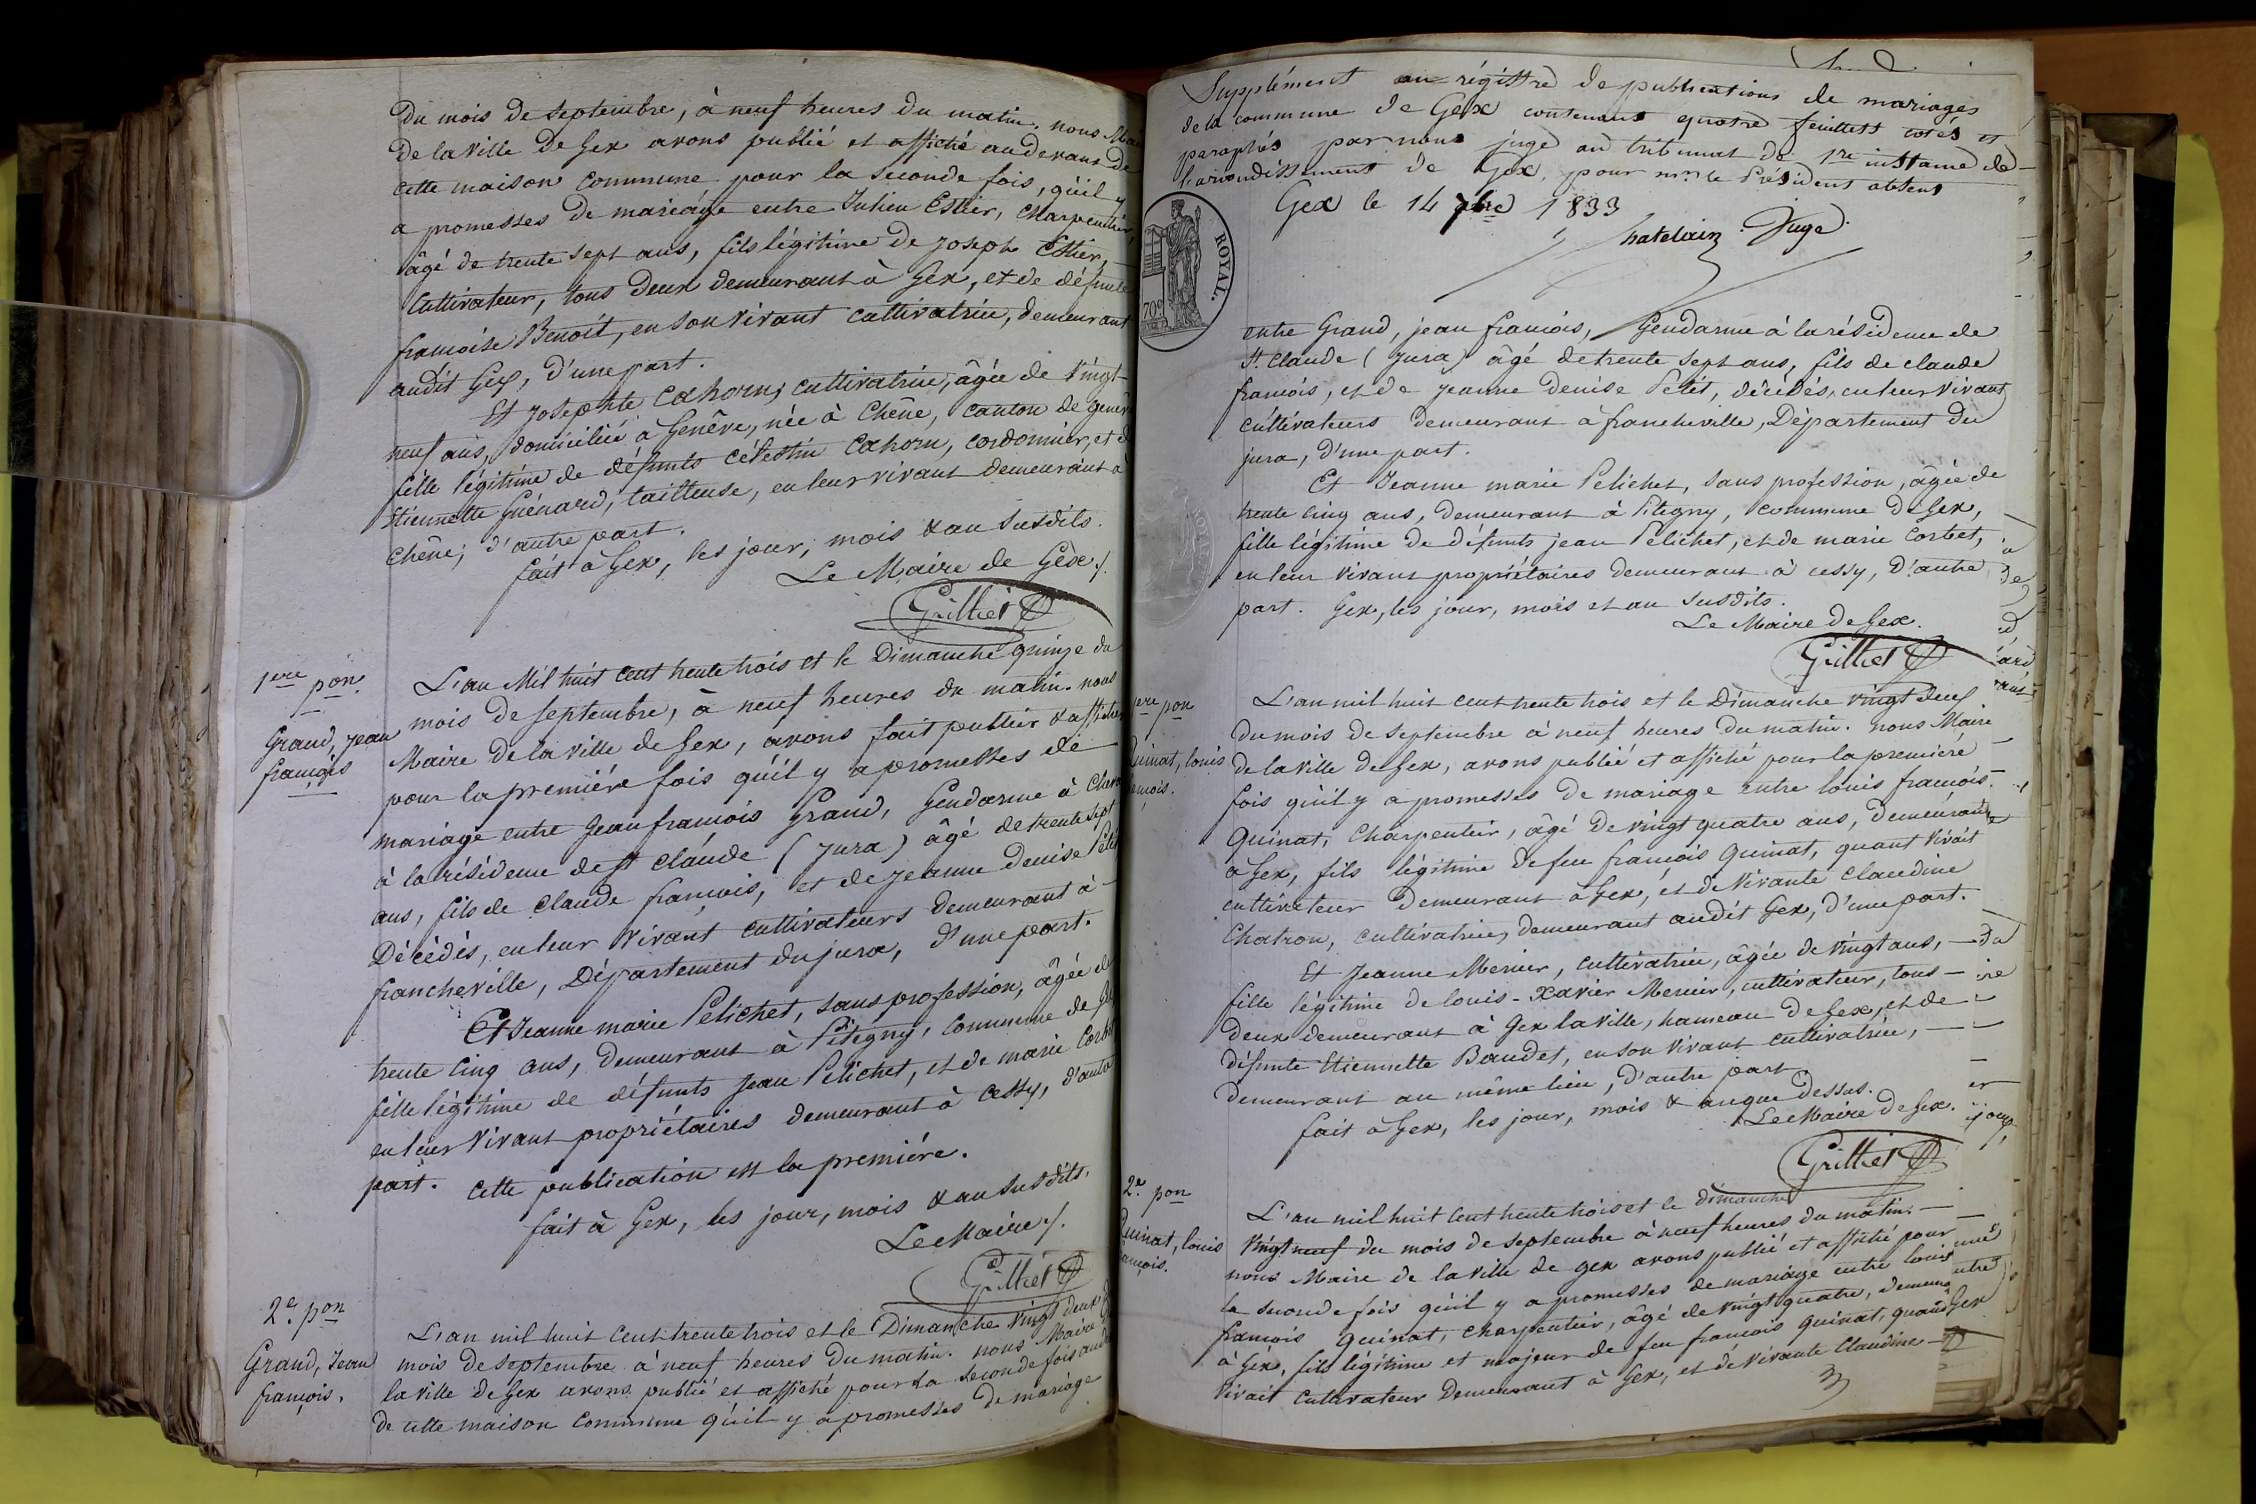 du mois de septembre, à neuf heures du matin. nous
de la ville de Gex avons publié et affiché au devant de
cette maison commune pour la seconde fois, qu'il y
a promesses de mariage entre Julien Estier, charpentier,
âgé de trente sept ans, fils légitime de joseph Estier,
cultivateur, tous deux demeurant à Gex, et de défunte
françoise Benoit, en son vivant cultivatrice, demeurant
audit Gex, d'une part.
Et Josephte Cahorn, cultivatrice, âgée de vingt
neuf ans, domiciliée à Genêve, née à Chêne, canton de
fille légitime de défunts célestin Cahorn, cordonnier, et
Etiennette Guénard, tailleuse, en leur vivant demeurant à
Chêne; d'autre part.
fait à Gex, les jour, mois & an susdits.
Le Maire de Gex /.
Grilliet
1ere pon.
Grand, Jean
françois
L'an Mil huit cent trente trois et le Dimanche quinze du
mois de septembre, à neuf heures du matin. nous
Maire de la ville de Gex, avons fait publier & afficher
pour la premiére fois qu'il y a promesses de
mariage entre Jean françois Grand, Gendarme à
à la résidence de St Claude (Jura) âgé de trente sept
ans, fils de Claude françois, et de Jeanne Denise Petit
Décédés, en leur vivant cultivateurs demeurant à
francheville, Département du jura, d'une part.
Et Jeanne marie Pelichet, sans profession, âgée de
trente cinq ans, demeurant à Pitegny, commune de Gex
fille légitime de défunts Jean Pelichet, et de marie Corbet
en leur vivant propriétaires demeurant à cessy, d'autre
part. Cette publication est la premiére.
fait à Gex, les jour, mois & an susdits.
Le Maire /.
Grilliet
2e. pon
Grand, Jean
françois.
L'an mil huit cent trente trois et le Dimanche vingt deux
mois de septembre à neuf heures du matin. nous Maire
la ville de Gex avons publié et affiché pour la seconde fois au
de cette maison commune qu'il y a promesses de mariage
Supplément au régistre de publications de mariages
de la commune de Gex contenant quatre feuillets cotés et
paraphés par nous juge au tribunal de 1re instance de
l'arrondissement de Gex, pour mr. le Président absent
Gex le 14 7bre 1833
Chatelain Juge.
ROYAL.
70c
entre Grand, jean francois, Gendarme à la résidence de
St. Claude (Jura) âgé de trente sept ans, fils de claude
francois, et de Jeanne Denise Petit, décédés, en leur vivant
cultivateurs demeurant à francheville, Département du
jura, d'une part.
Et Jeanne marie Pelichet, sans profession, âgée de
trente cinq ans, demeurant à Pitegny, commune de Gex,
fille légitime de défunts jean Pelichet, et de marie Corbet,
en leur vivant propriétaires demeurant à cessy, d'autre
part. Gex, les jour, mois et an susdits.
Le Maire de Gex.
Grilliet
ere pon
uinat, louis
ançois.
L'an mil huit cent trente trois et le Dimanche vingt deux
du mois de septembre à neuf heures du matin. nous Maire
de la ville de Gex, avons publié et affiché pour la premiére
fois qu'il y a promesses de mariage entre louis francois
Quinat, charpentier, âgé de vingt quatre ans, demeurant
à Gex, fils légitime de feu françois Quinat, quant vivait
cultivateur demeurant à Gex, et de vivante claudine
Chatron, cultivatrice, demeurant audit Gex, d'une part.
Et Jeanne Mercier, cultivatrice, âgée de vingt ans,
fille légitime de louis-Xavier Mercier, cultivateur, tous
deux demeurant à Gex la ville, hameau de Gex, et de
défunte Etiennette Baudet, en son vivant cultivatrice,
demeurant au même lieu, d'autre part
fait à Gex, les jour, mois & an que dessus.
Le Maire de Gex.
Grilliet
2e. pon
Quinat, louis
ançois.
L'an mil huit cent trente trois et le dimanche
vingt neuf du mois de septembre à neuf heures du matin.
nous Maire de la ville de gex avons publié et affiché pour
la seconde fois qu'il y a promesses de mariage entre louis
françois Quinat, charpentier, âgé de vingt quatre, demeur
à Gex, fils légitime et majeur de feu francois Quinat, quand
vivait cultivateur demeurant à Gex, et de vivante Claudine